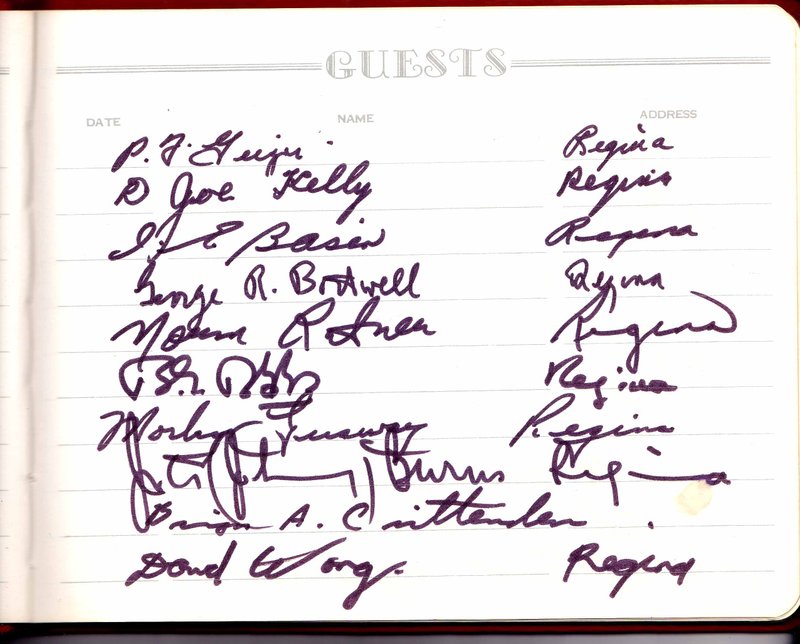 GUESTS
DATE NAME ADDRESS
P. F. Regina
D Joe Kelly Regina
Basin Regina
George R. Bothwell Regina
Norm Rotner Regina
Regina
Morley Regina
J. C. (Johnny) Burns Regina
Brian A. Crittenden
David Wong. Regina